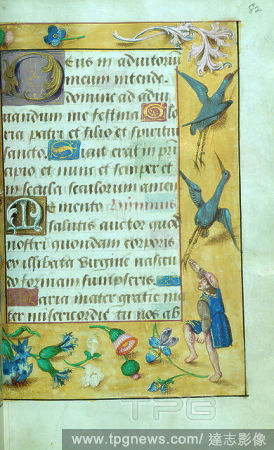 82
Deus in adiutoriu
meum intende.
Domine ad adiu
uandum me festina. Glo
ria patri et filio et spiritui
sancto. Sicut erat in prin
cipio et nunc et semper et
in secula seculorum amen
Memento
salutis auctor quod
nostri quondam corporis
ex illibata virgine nascen
do formam sumpseris.
Maria mater gratie ma
ter misericordie tu nos ab
TPG
www.tpgnews.com/達志影像